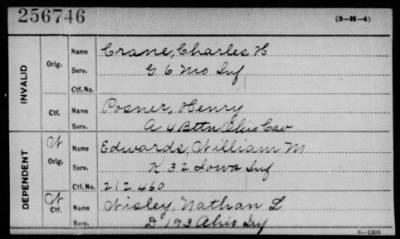 256746
(3-H-4)
INVALID
Orig.
Name Crane, Charles H
Serv. G 6 Mo Inf
Ctf. No.
Ctf.
Name Posner, Henry
Serv. A 4 Bttn Ohio Cav
DEPENDENT
W Orig.
Name Edwards, William M
Serv. K 32 Iowa Inf
Ctf. No. 212460
W Ctf.
Name Nisley, Nathan L
Serv. D 193 Ohio Inf